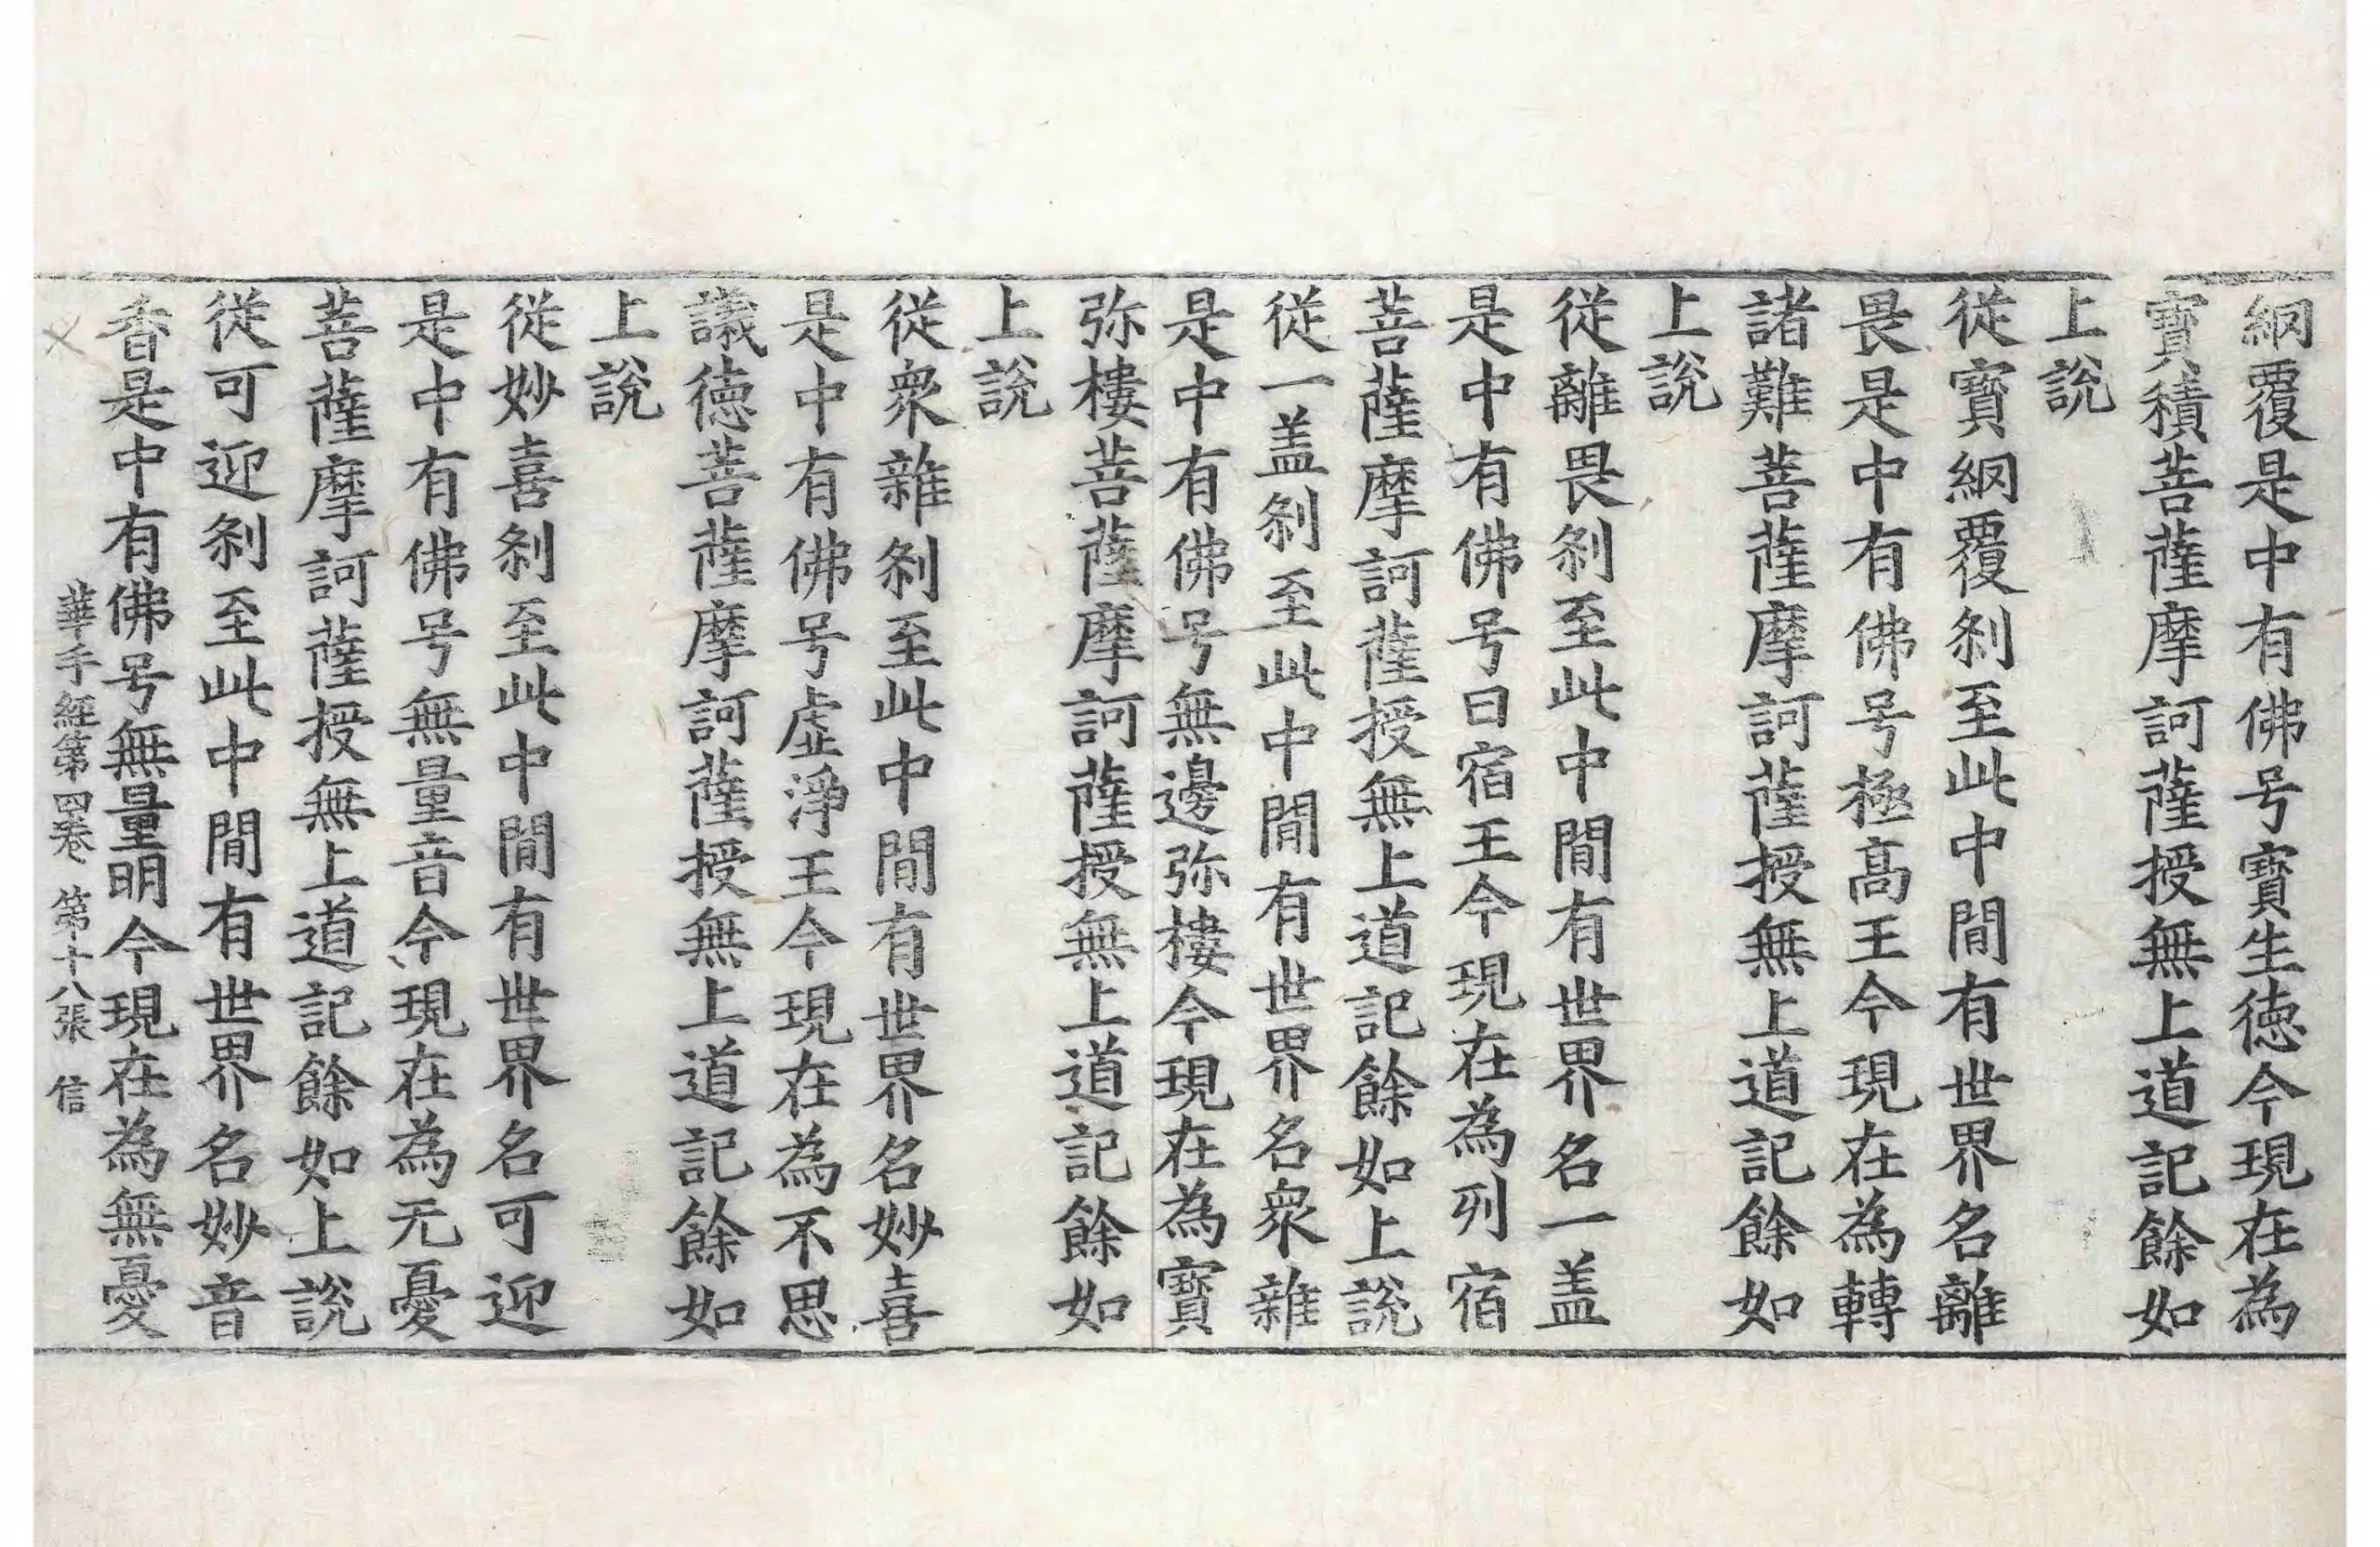 網覆是中有佛号寶生徳今現在為
寶積菩薩摩訶薩授無上道記餘如
上說
從寶網覆刹至此中間有世界名離
畏是中有佛号極高王今現在為轉
諸難菩薩摩訶薩授無上道記餘如
上說
從離畏刹至此中間有世界名一盖
是中有佛号曰宿王今現在為列宿
菩薩摩訶薩授無上道記餘如上說
從一盖刹至此中間有世界名衆雜
是中有佛号無邊弥樓今現在為寶
弥樓菩薩摩訶薩授無上道記餘如
上說
從衆雜刹至此中間有世界名妙喜
是中有佛号虛淨王今現在為不思
議徳菩薩摩訶薩授無上道記餘如
上說
從妙喜刹至此中間有世界名可迎
是中有佛号無量音今現在為无憂
菩薩摩訶薩授無上道記餘如上說
從可迎刹至此中間有世界名妙音
香是中有佛号無量明今現在為無憂
華手經第四卷 第十八張 信